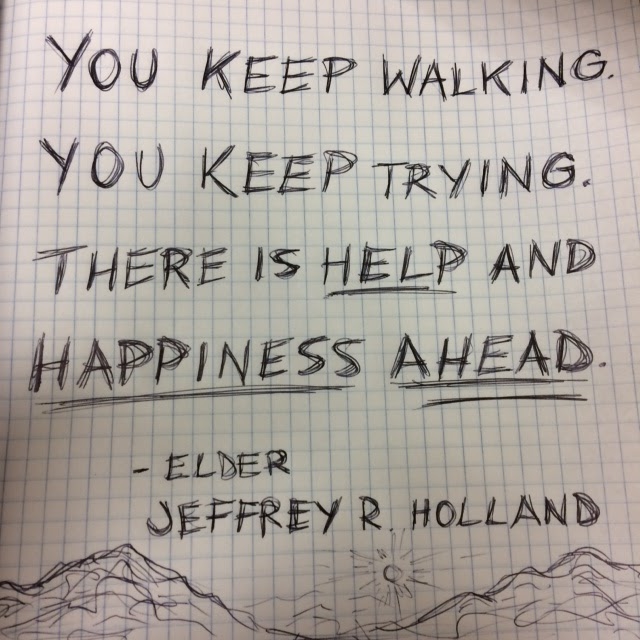 YOU KEEP WALKING.
YOU KEEP TRYING.
THERE IS HELP AND
HAPPINESS AHEAD.
- ELDER
JEFFREY R. HOLLAND